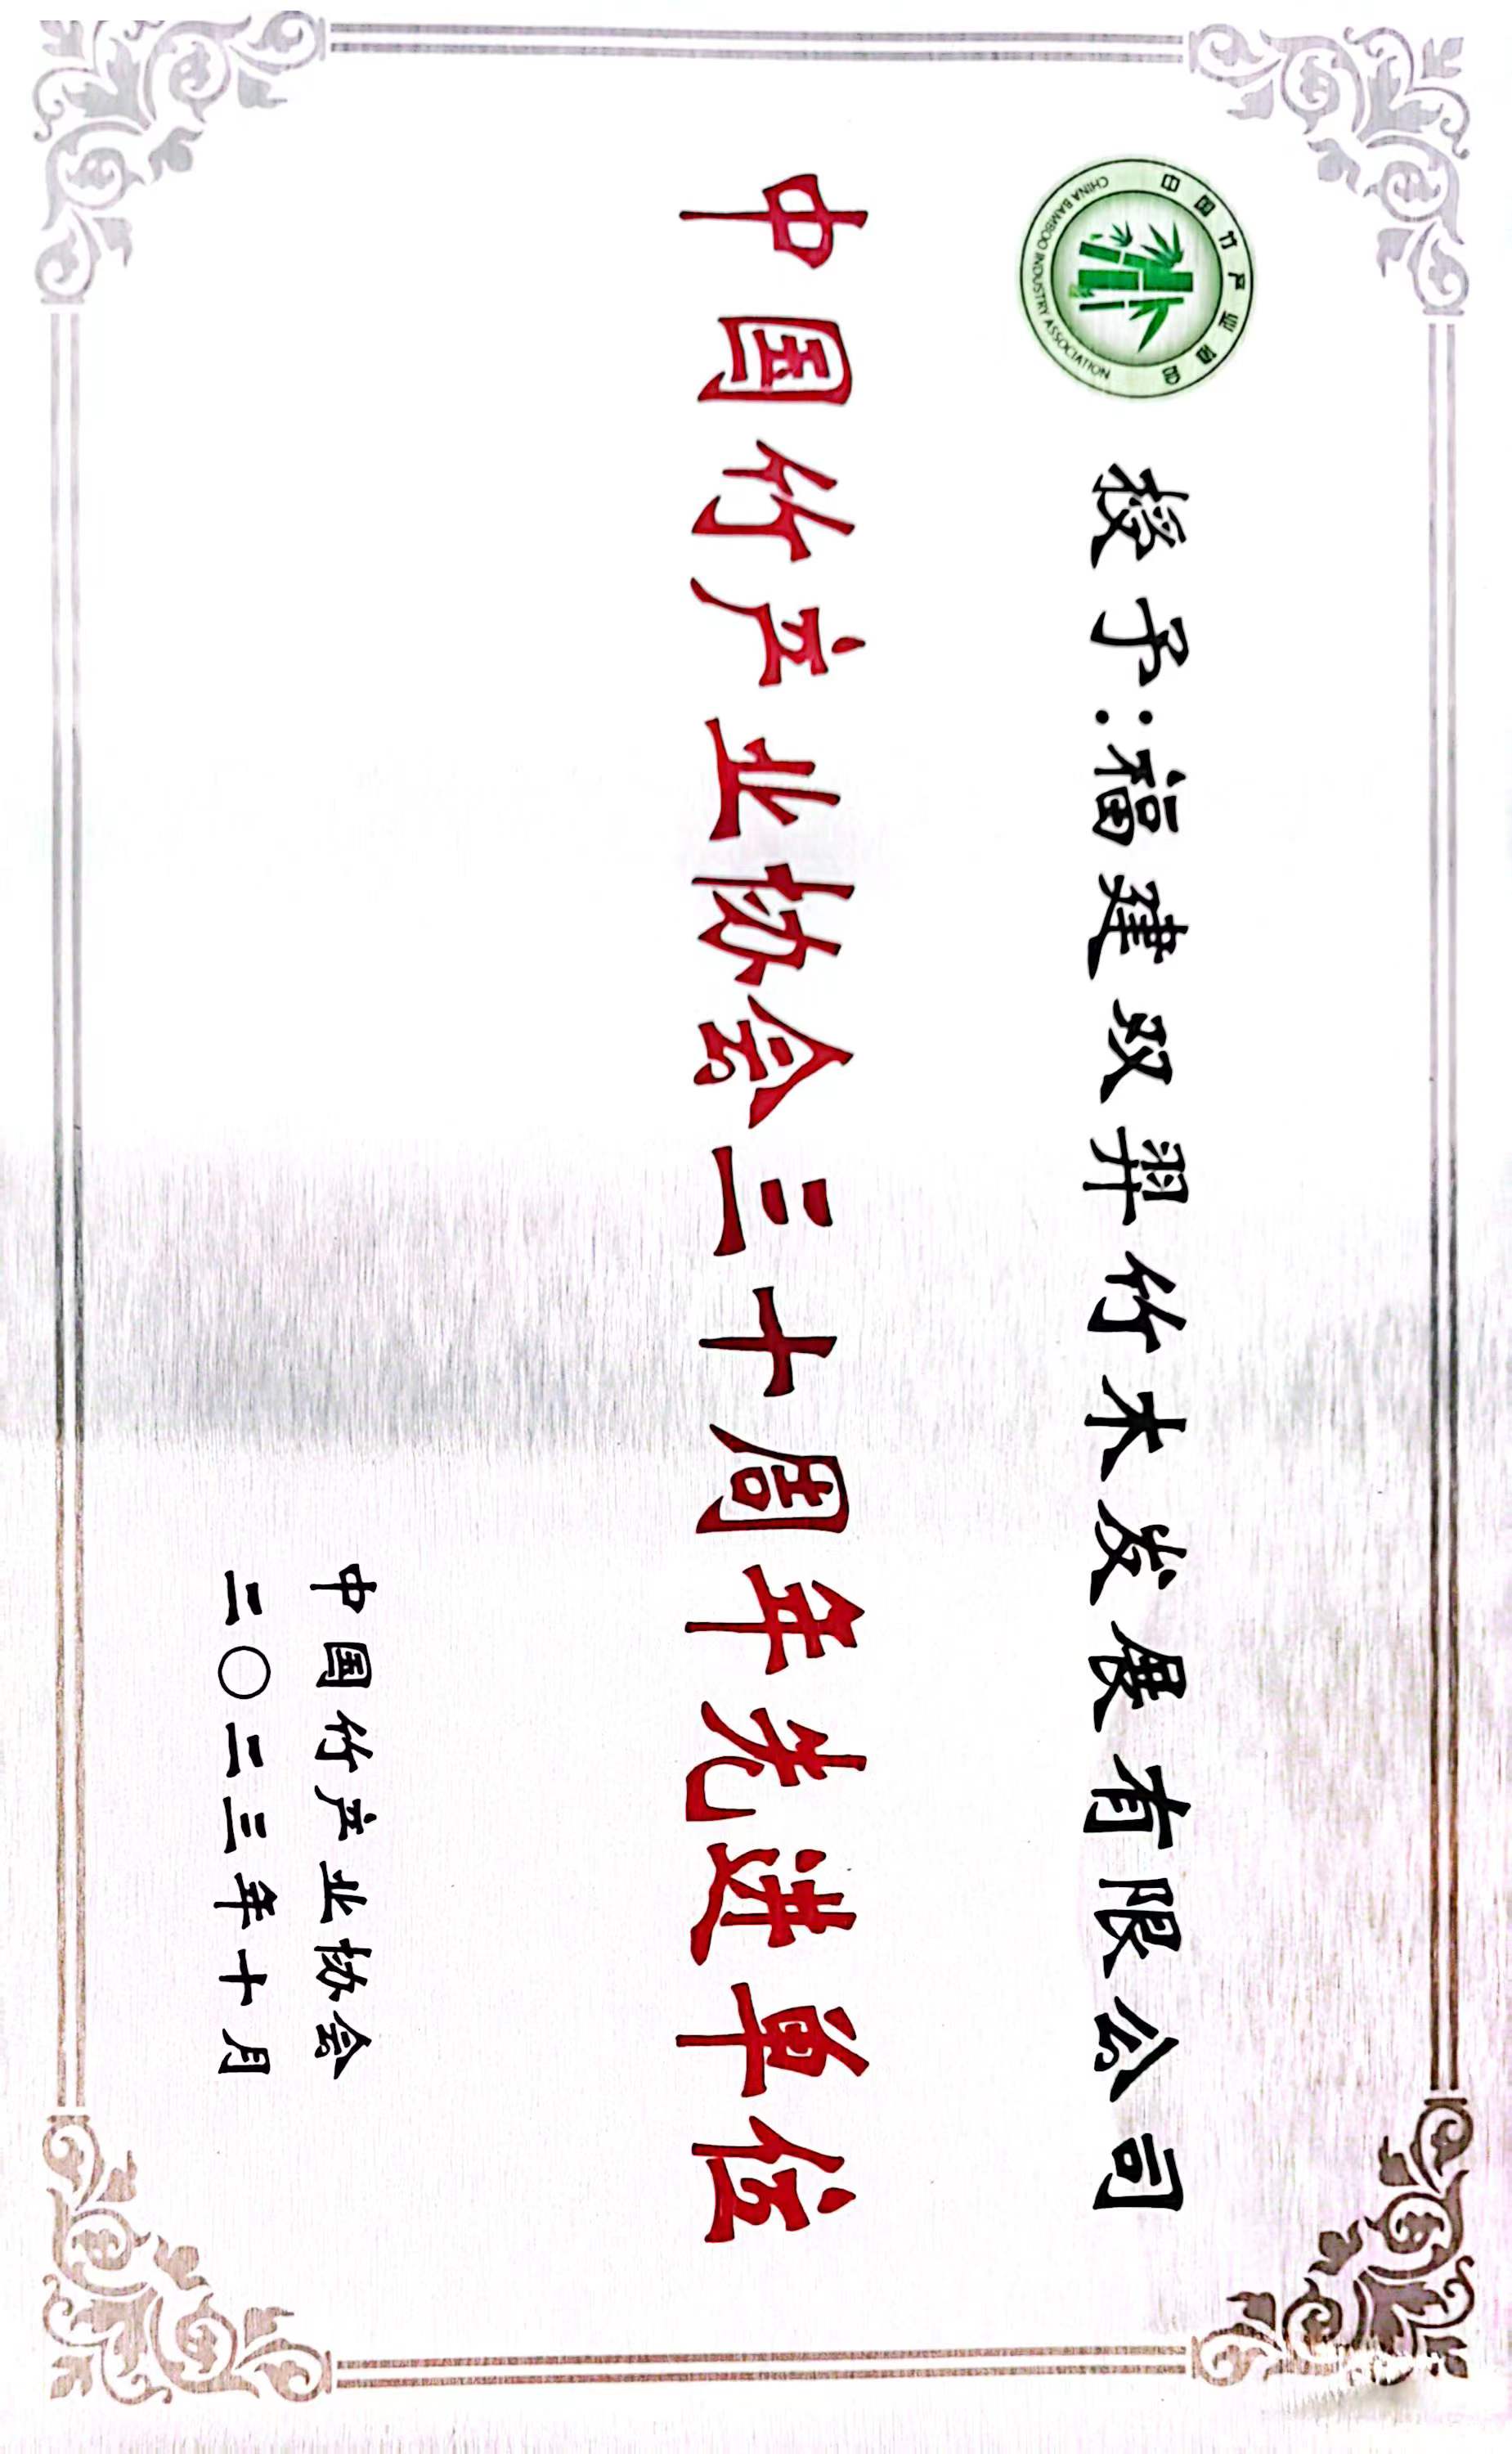 中国竹产业协会
CHINA BAMBOO INDUSTRY ASSOCIATION
授予:福建双羿竹木发展有限公司
中国竹产业协会三十周年先进单位
中国竹产业协会
二〇二三年十月